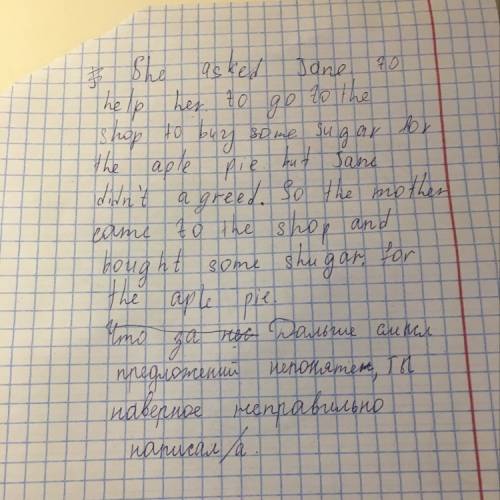 She asked Jane to
help her to go to the
shop to buy some sugar for
the aple pie but Jane
didn't agreed. So the mother
came to the shop and
bought some shugar for
the aple pie.
Что за Дальше смысл
предложений непонятен, ты
наверное неправильно
написал/а.